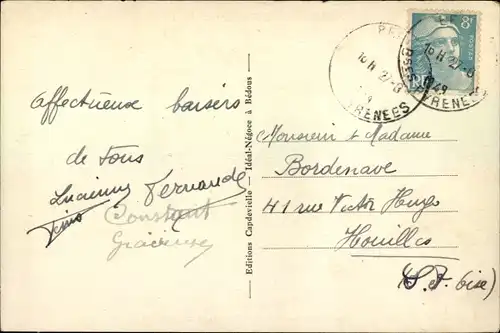 affectueuse baisers
de tous
Fernande
Constant
Gracieuse
Editions Capdevielle - Idéal-Négoce à Bedous -
8F
16 H 27-8
1949
PYRENEES
16 H 27-8
PYRENEES
Monsieur et Madame
Bordenave
41 rue Victor Hugo
Houilles
(S. et Oise)